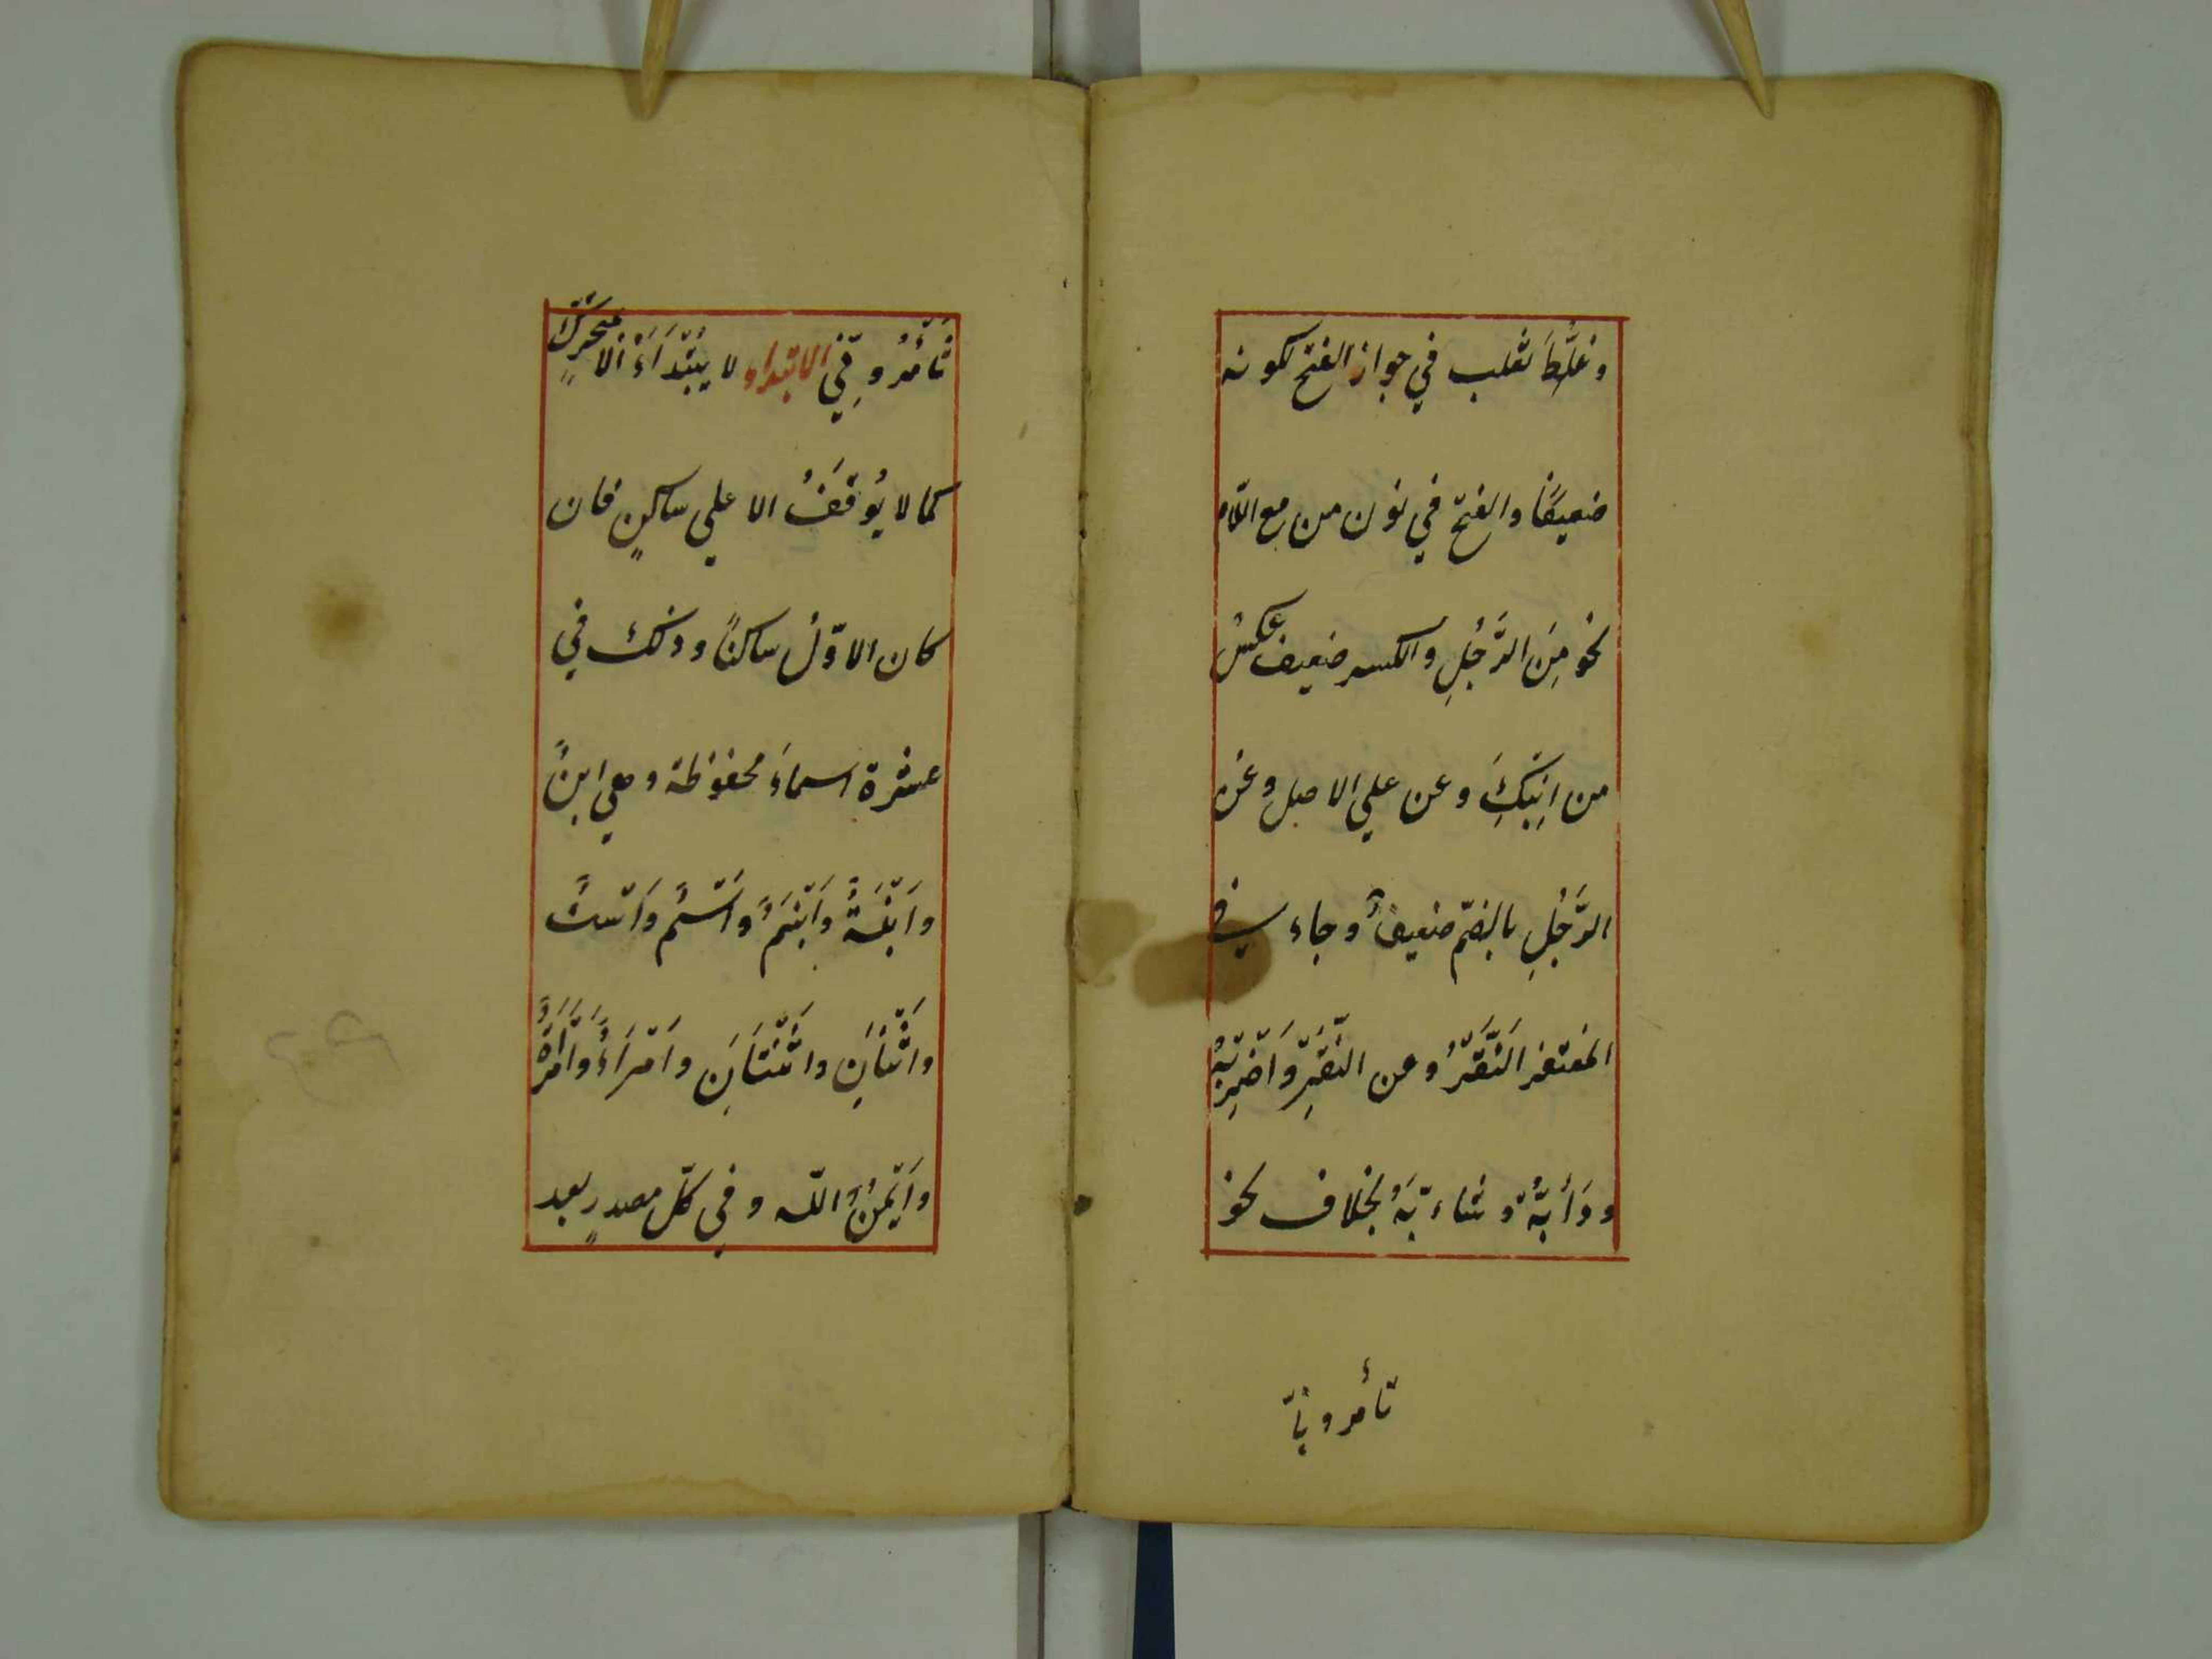 وغُلِّطَ ثعلب في جواز الفتح لكونه
ضعيفًا والفتح في نون من مع اللّام
نحو مِنَ الرَّجُلِ والكسر ضعيف عكسُ
من اِبْنِكَ وعن علي الاصل وعن
الرَّجُلِ بالضمّ ضعيفٌ وجاء في
المغتفر النَّقُرْ وعن النَّقِرْ وَاضْرِبُهْ
ودَأَبَّةٌ وشاءبَّةٌ بخلاف نحو
تأمرونّا
تَأْمُرُونِّي الابتداء لا يُبْتَدَاءُ الّا بمتحرّكٍ
كما لا يُوقَفُ الا علي ساكنٍ فان
كان الاوّلُ ساكنًا وذلك في
عشرة اسماءَ محفوظة وهي ابنٌ
وابْنَةٌ وابْنَمٌ واسْمٌ واسْتٌ
واثْنَانِ واثْنَتَانِ وامْرَاءٌ وامْرَاَةٌ
وايْمُنُ اللّه وفي كلّ مصدرٍ بعد